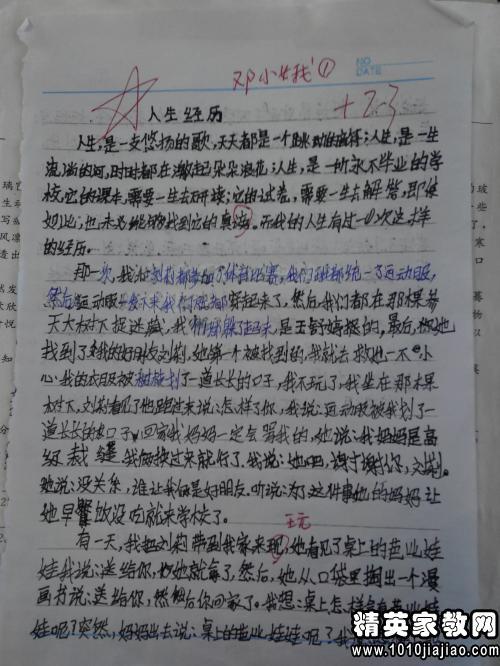 邓小线①
NO
DATE
+23
人生经历
人生,是一支悠扬的歌,天天都是一个跳动的音符;人生,是一生
流淌的河,时时都在激起朵朵浪花;人生,是一所永不毕业的学
校,它的课本,需要一生去研读;它的试卷,需要一生去解答,即使
如此,也未必能够找到它的真谛。而我的人生有过一次这样
的经历。
那一次,我和刘莉都参加了体育比赛,我们班都统一了运动服,
然后运动服发下来我们班都穿起来了,然后我们都在那棵参
天大树下捉迷藏,我们都躲了起来,是王舒婷抓的,最后,她
找到了我的好朋友刘莉,她第一个被找到的,我就去救她一不小
心,我的衣服被树枝划了一道长长的口子,我不玩了,我坐在那棵
树下,刘莉看见了也跑过来说:怎样了你,我说:运动服被我划了一
道长长的口子,回家我妈妈一定会骂我的,她说:我妈妈是高
级裁缝,我俩换过来就行了。我说:她吧,谢谢你,刘莉。
她说:没关系,谁让我俩是好朋友。听说:为了这件事她的妈妈让
她早餐饭没吃就来学校了。
玩
有一天,我把刘莉带到我家来玩,她看见了桌上的芭比娃
娃我说:送给你,她就拿了,然后,她从口袋里掏出一个漫
画书说:送给你,然后你回家了。我想:桌上怎样会有芭比娃
娃呢?突然,妈妈出去说:桌上的芭比娃娃呢?我
精英家教网
www.1010jiajiao.com